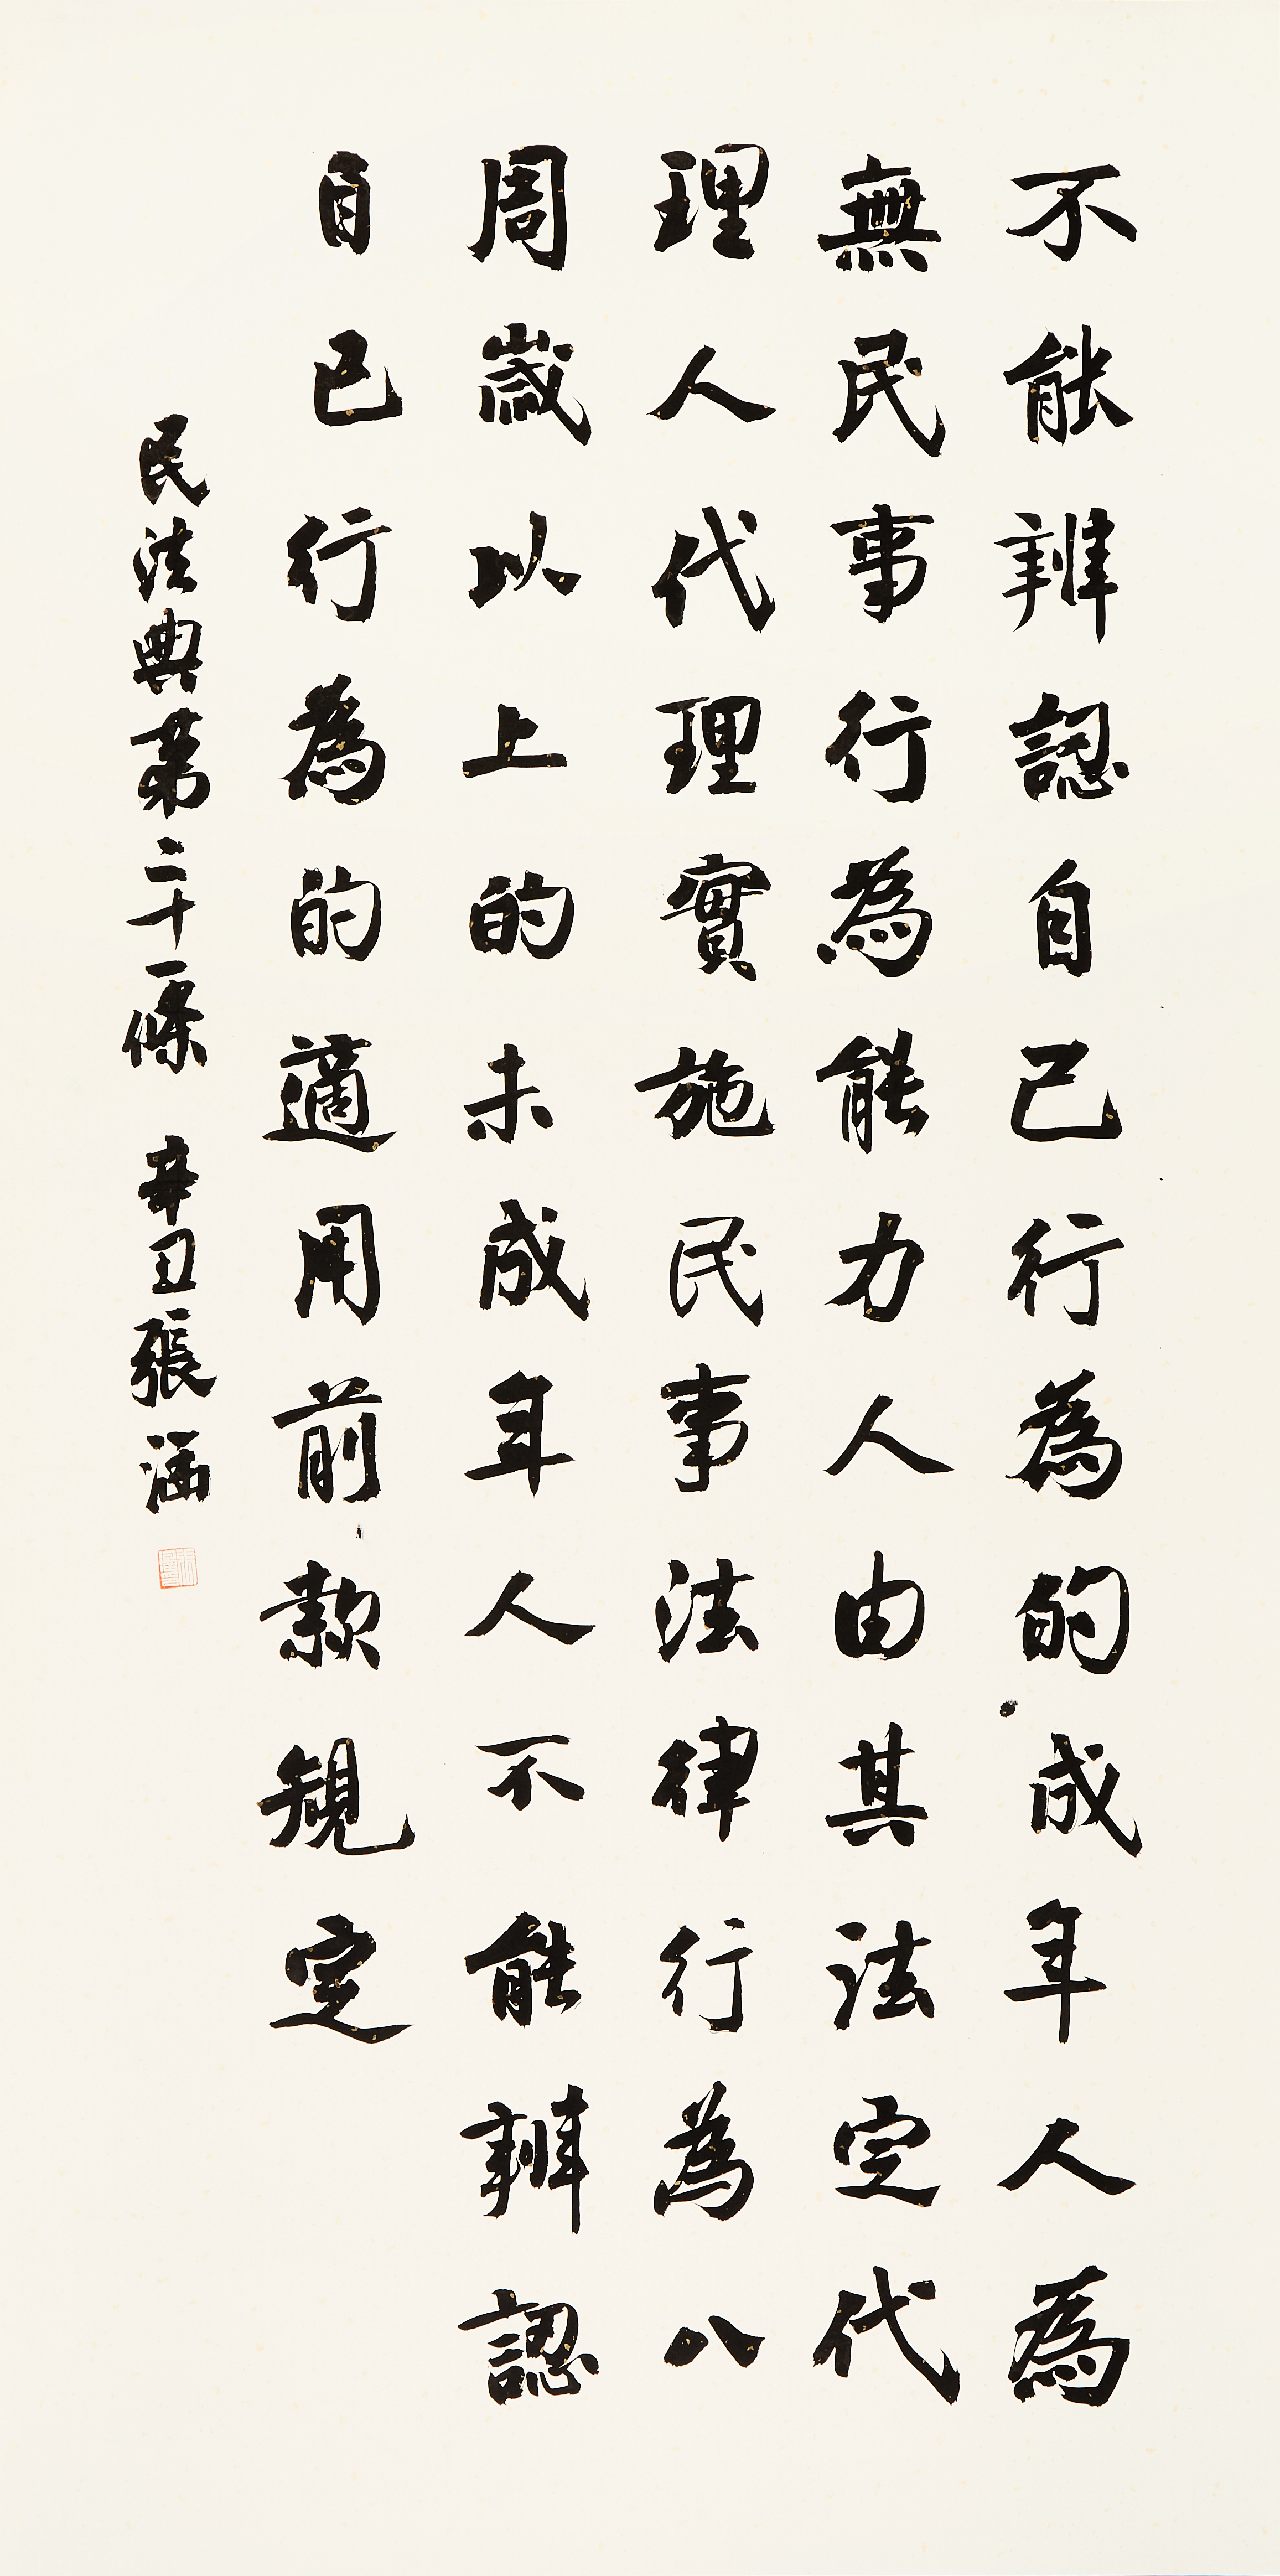 不能辨認自己行為的成年人為
無民事行為能力人由其法定代
理人代理實施民事法律行為八
周歲以上的未成年人不能辨認
自己行為的適用前款規定
民法典第二十一條 辛丑張涵